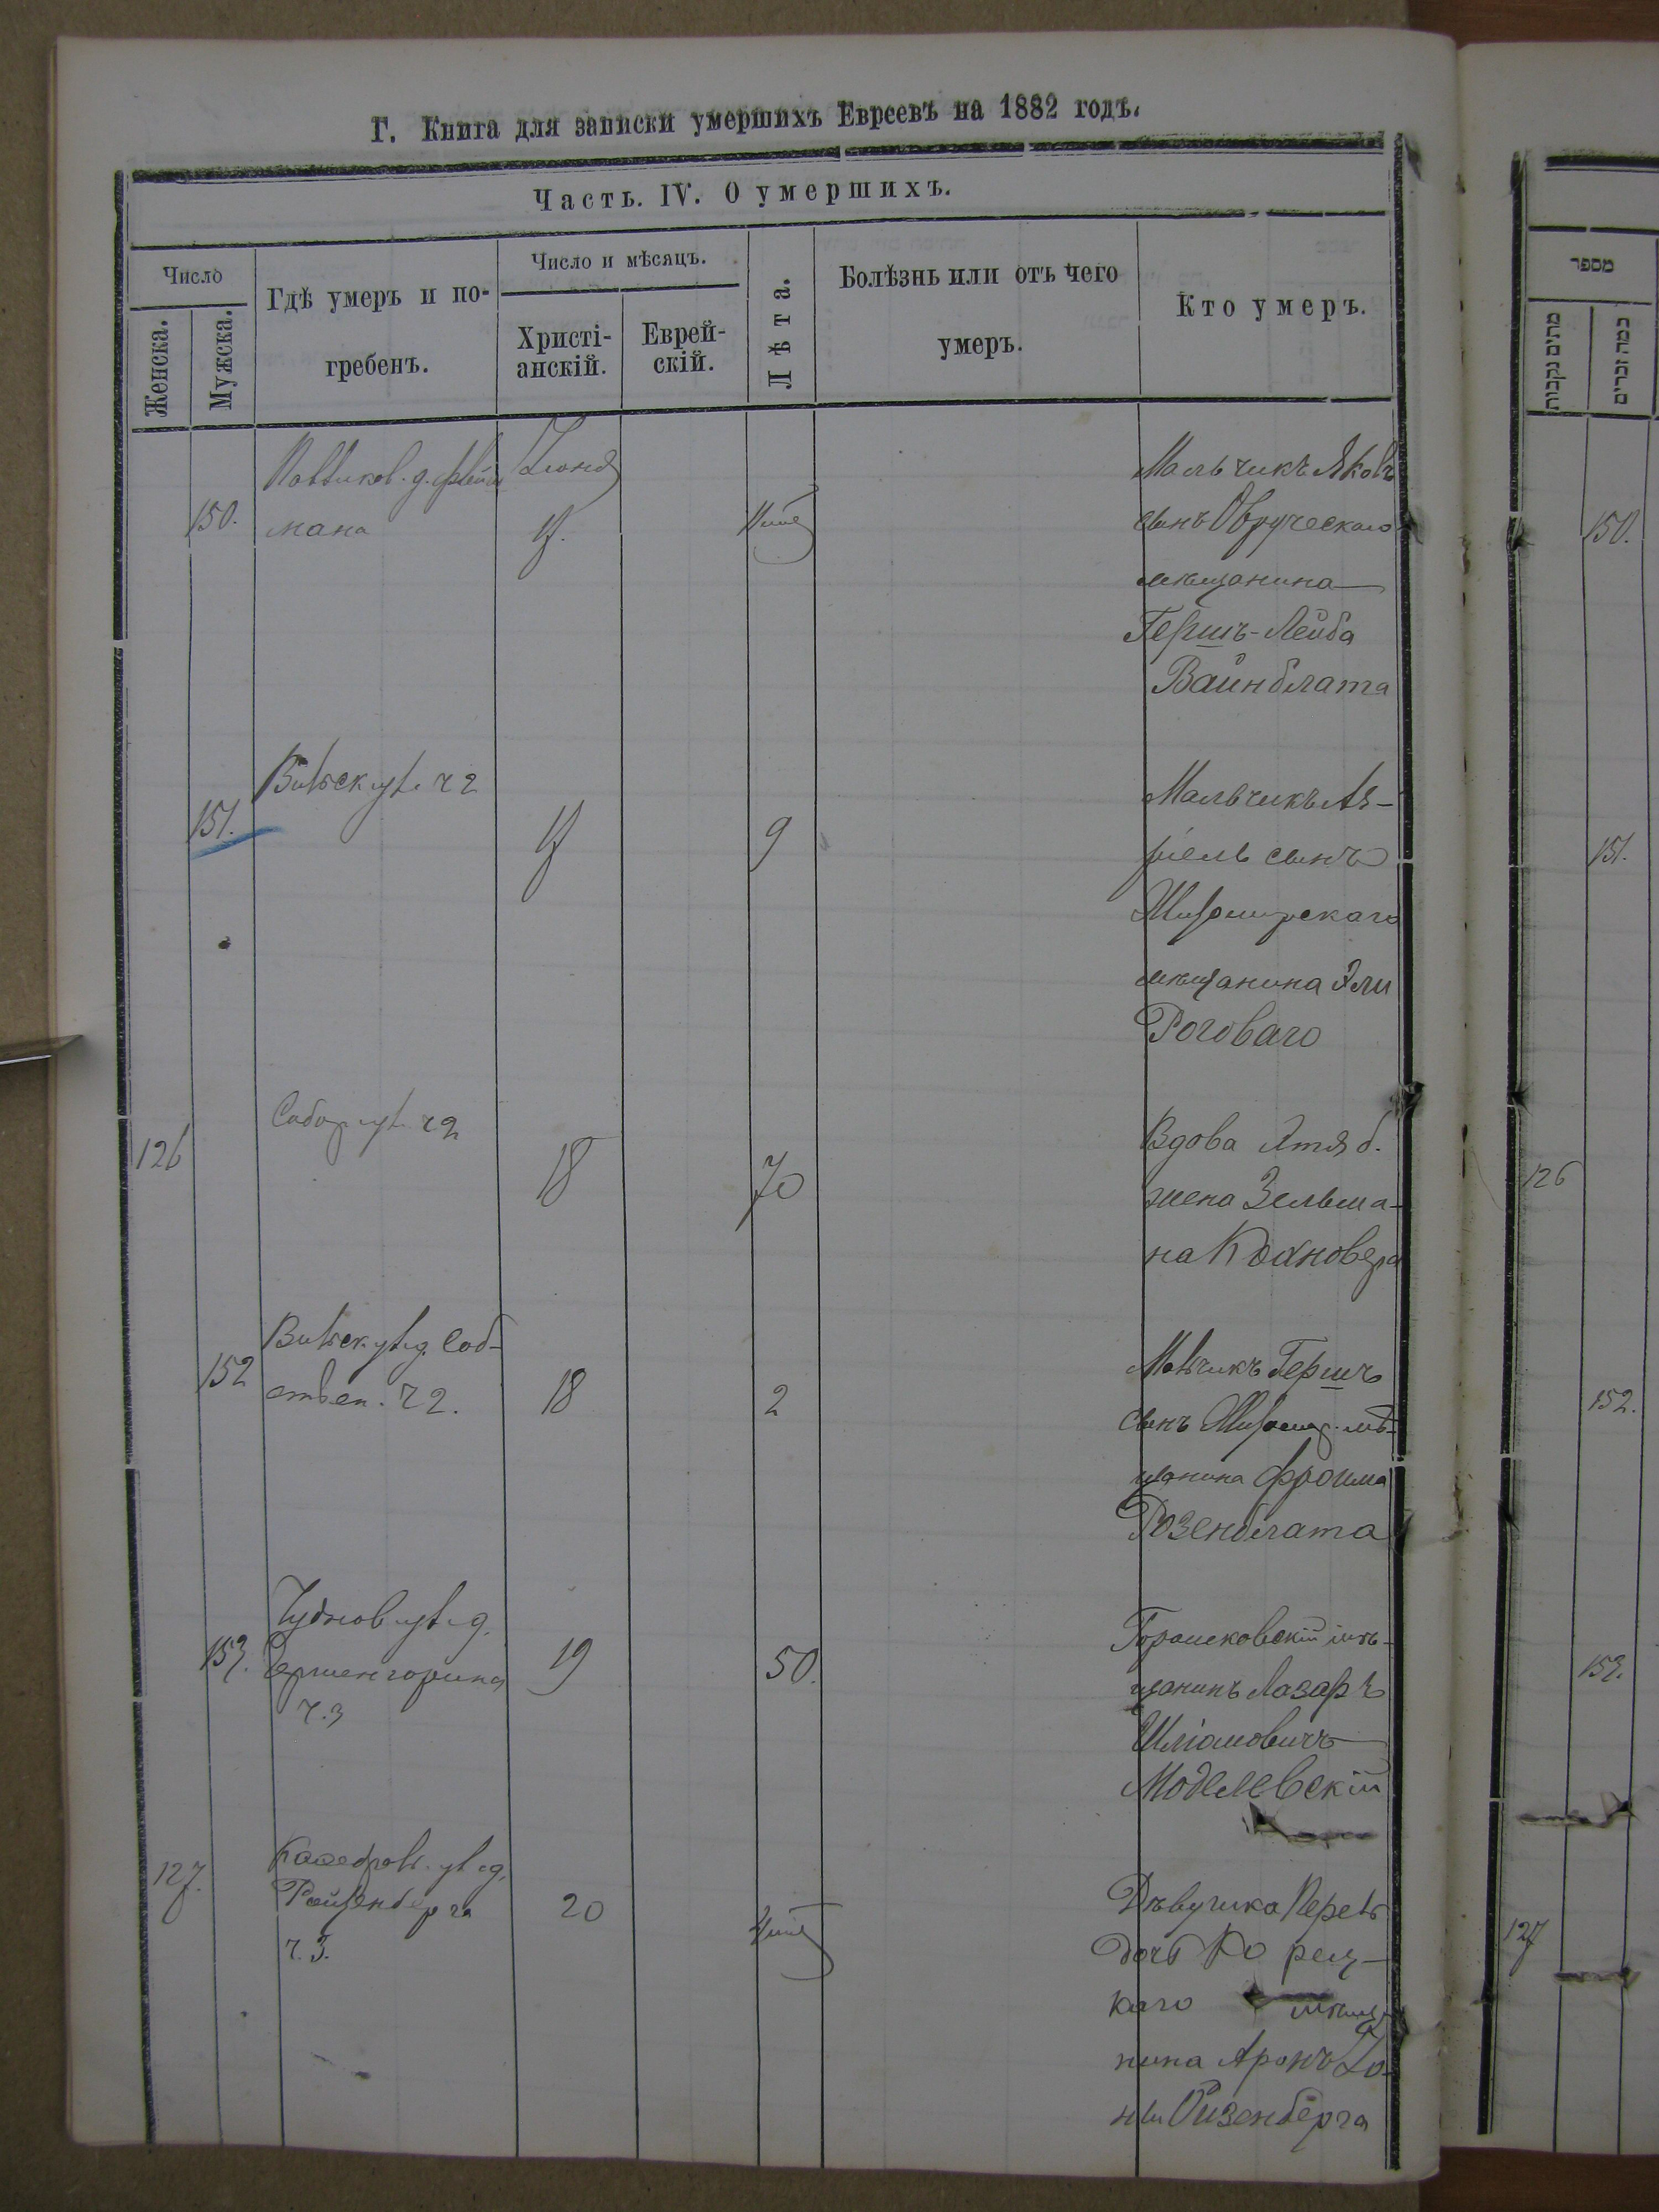 Г. Книга для записки умершихъ Евреевъ на 1882 годъ.
Часть. IV. О умершихъ.
Число
Женска.
Мужска.
Гдѣ умеръ и по-
гребенъ.
Число и мѣсяцъ.
Христі-
анскій.
Еврей-
скій.
Лѣта.
Болѣзнь или отъ чего
умеръ.
Кто умеръ.
150.
мана
Мальчикъ Яковъ
сынъ Овручскаго
мѣщанина
Гершъ-Лейба
Вайнблата
151.
ч 2
9
Мальчикъ Аз-
ріель сынъ
Житомирскаго
мѣщанина Эли
Роговаго
126
Собор ул. ч 2
18
70
Вдова Этля б.
жена Зельма-
на Кохновера
152
ул. д. Соб-
ствен. ч 2.
18
2
Мальчикъ Гершъ
сынъ Житомир. мѣ-
щанина Фроима
Розенблата
153.
Чуднов ул. д.
ч. 3
19
50.
Горошковскій мѣ-
щанинъ Лазаръ
Шліомовичъ
Моделевскій
127.
ул. д.
ч. 3.
20
Дѣвушка Перель
дочь Корец-
каго мѣща-
нина Аронъ Іо-
ны Ойзенберга
מספר
מתים נקבות
כמה זכרים
150.
151.
126
152.
153.
127